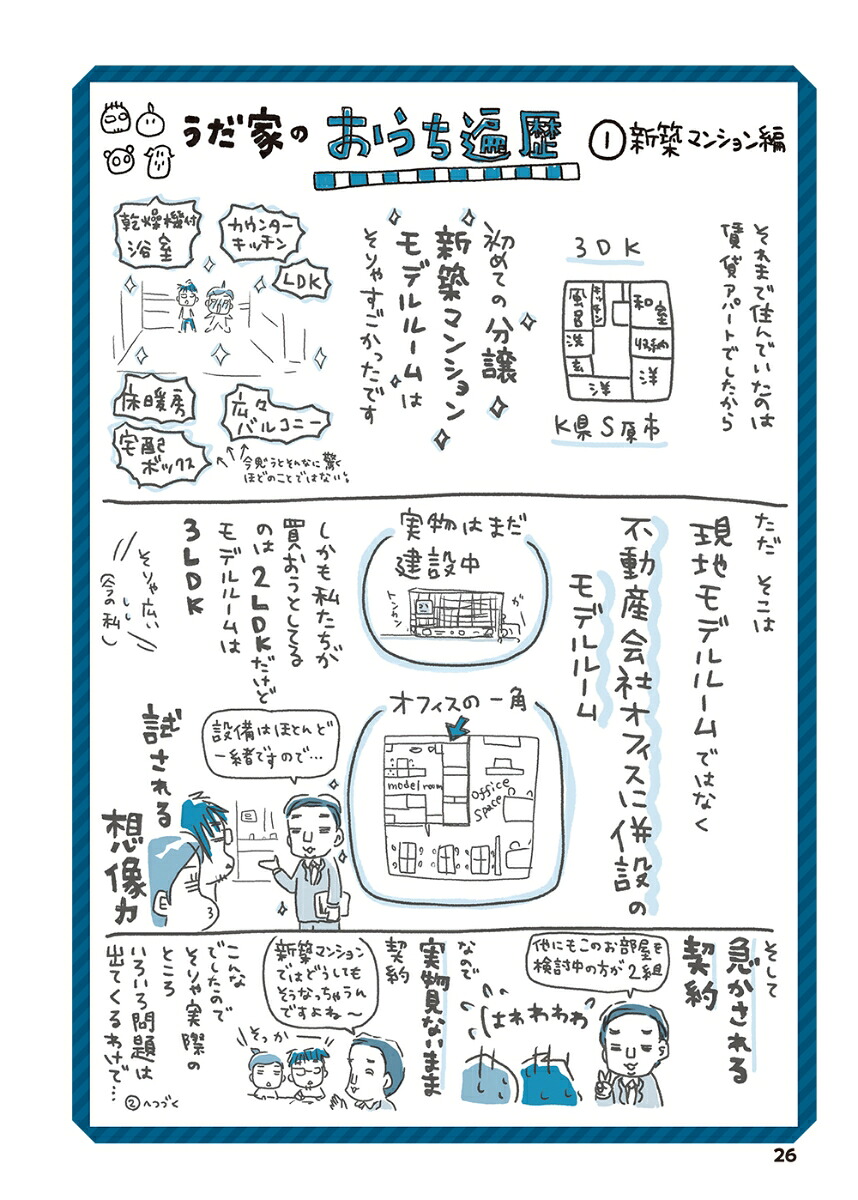 うだ家の おうち遍歴 ①新築マンション編
それまで住んでいたのは
賃貸アパートでしたから
3DK
風呂
キッチン
和室
洗
収納
玄
洋
洋
K県S原市
初めての分譲
新築マンション
モデルルームは
そりゃすごかったです
乾燥機付
浴室
カウンター
キッチン
LDK
床暖房
広々
バルコニー
宅配
ボックス
今思うとそんなに驚く
ほどのことではない。
ただ そこは
現地モデルルームではなく
不動産会社オフィスに併設の
モデルルーム
実物はまだ
建設中
トンカン
ガー
オフィスの一角
model room
office
space
しかも私たちが
買おうとしてる
のは2LDKだけど
モデルルームは
3LDK
そりゃ広い
(今の私)
設備はほとんど
一緒ですので…
試される
想像力
そして
急かされる
契約
他にもこのお部屋を
検討中の方が2組
はわわわわ
なので
実物見ないまま
契約
新築マンション
ではどうしても
そうなっちゃうん
ですよね〜
そっか
こんな
でしたので
そりゃ実際の
ところ
いろいろ問題は
出てくるわけで…
②へつづく
26